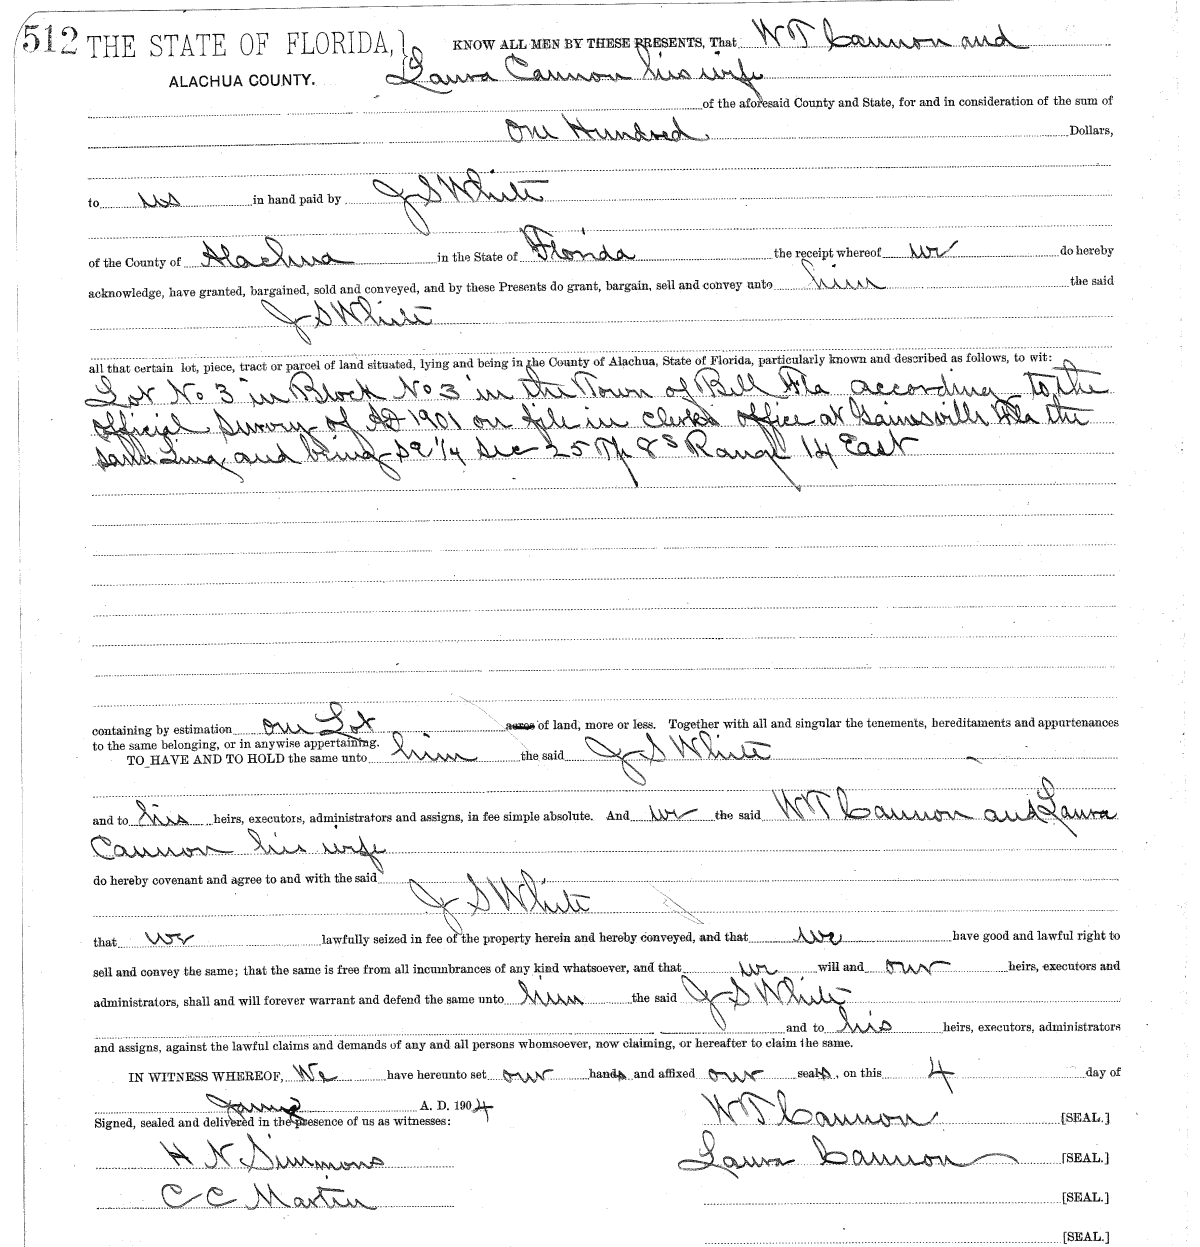 512 THE STATE OF FLORIDA, } KNOW ALL MEN BY THESE PRESENTS, That W T Cannon and
ALACHUA COUNTY. Laura Cannon his wife
of the aforesaid County and State, for and in consideration of the sum of
One Hundred Dollars,
to us in hand paid by J S White
of the County of Alachua in the State of Florida the receipt whereof we do hereby
acknowledge, have granted, bargained, sold and conveyed, and by these Presents do grant, bargain, sell and convey unto him the said
J S White
all that certain lot, piece, tract or parcel of land situated, lying and being in the County of Alachua, State of Florida, particularly known and described as follows, to wit:
Lot No 3 in Block No 3 in the Town of Bell Fla according to the
official Survey of AD 1901 on file in clerks office at Gainesville Fla the
same Ling and being SE 1/4 Sec 25 Tp 8 S Range 14 East
containing by estimation one Lot acres of land, more or less. Together with all and singular the tenements, hereditaments and appurtenances
to the same belonging, or in anywise appertaining.
TO HAVE AND TO HOLD the same unto him the said J S White
and to his heirs, executors, administrators and assigns, in fee simple absolute. And we the said W T Cannon and Laura
Cannon his wife
do hereby covenant and agree to and with the said
J S White
that we lawfully seized in fee of the property herein and hereby conveyed, and that we have good and lawful right to
sell and convey the same; that the same is free from all incumbrances of any kind whatsoever, and that we will and our heirs, executors and
administrators, shall and will forever warrant and defend the same unto him the said J S White
and to his heirs, executors, administrators
and assigns, against the lawful claims and demands of any and all persons whomsoever, now claiming, or hereafter to claim the same.
IN WITNESS WHEREOF, We have hereunto set our hands and affixed our seals, on this 4 day of
A. D. 1904 W T Cannon [SEAL.]
Signed, sealed and delivered in the presence of us as witnesses:
H N Simmons Laura Cannon [SEAL.]
C C Martin [SEAL.]
[SEAL.]